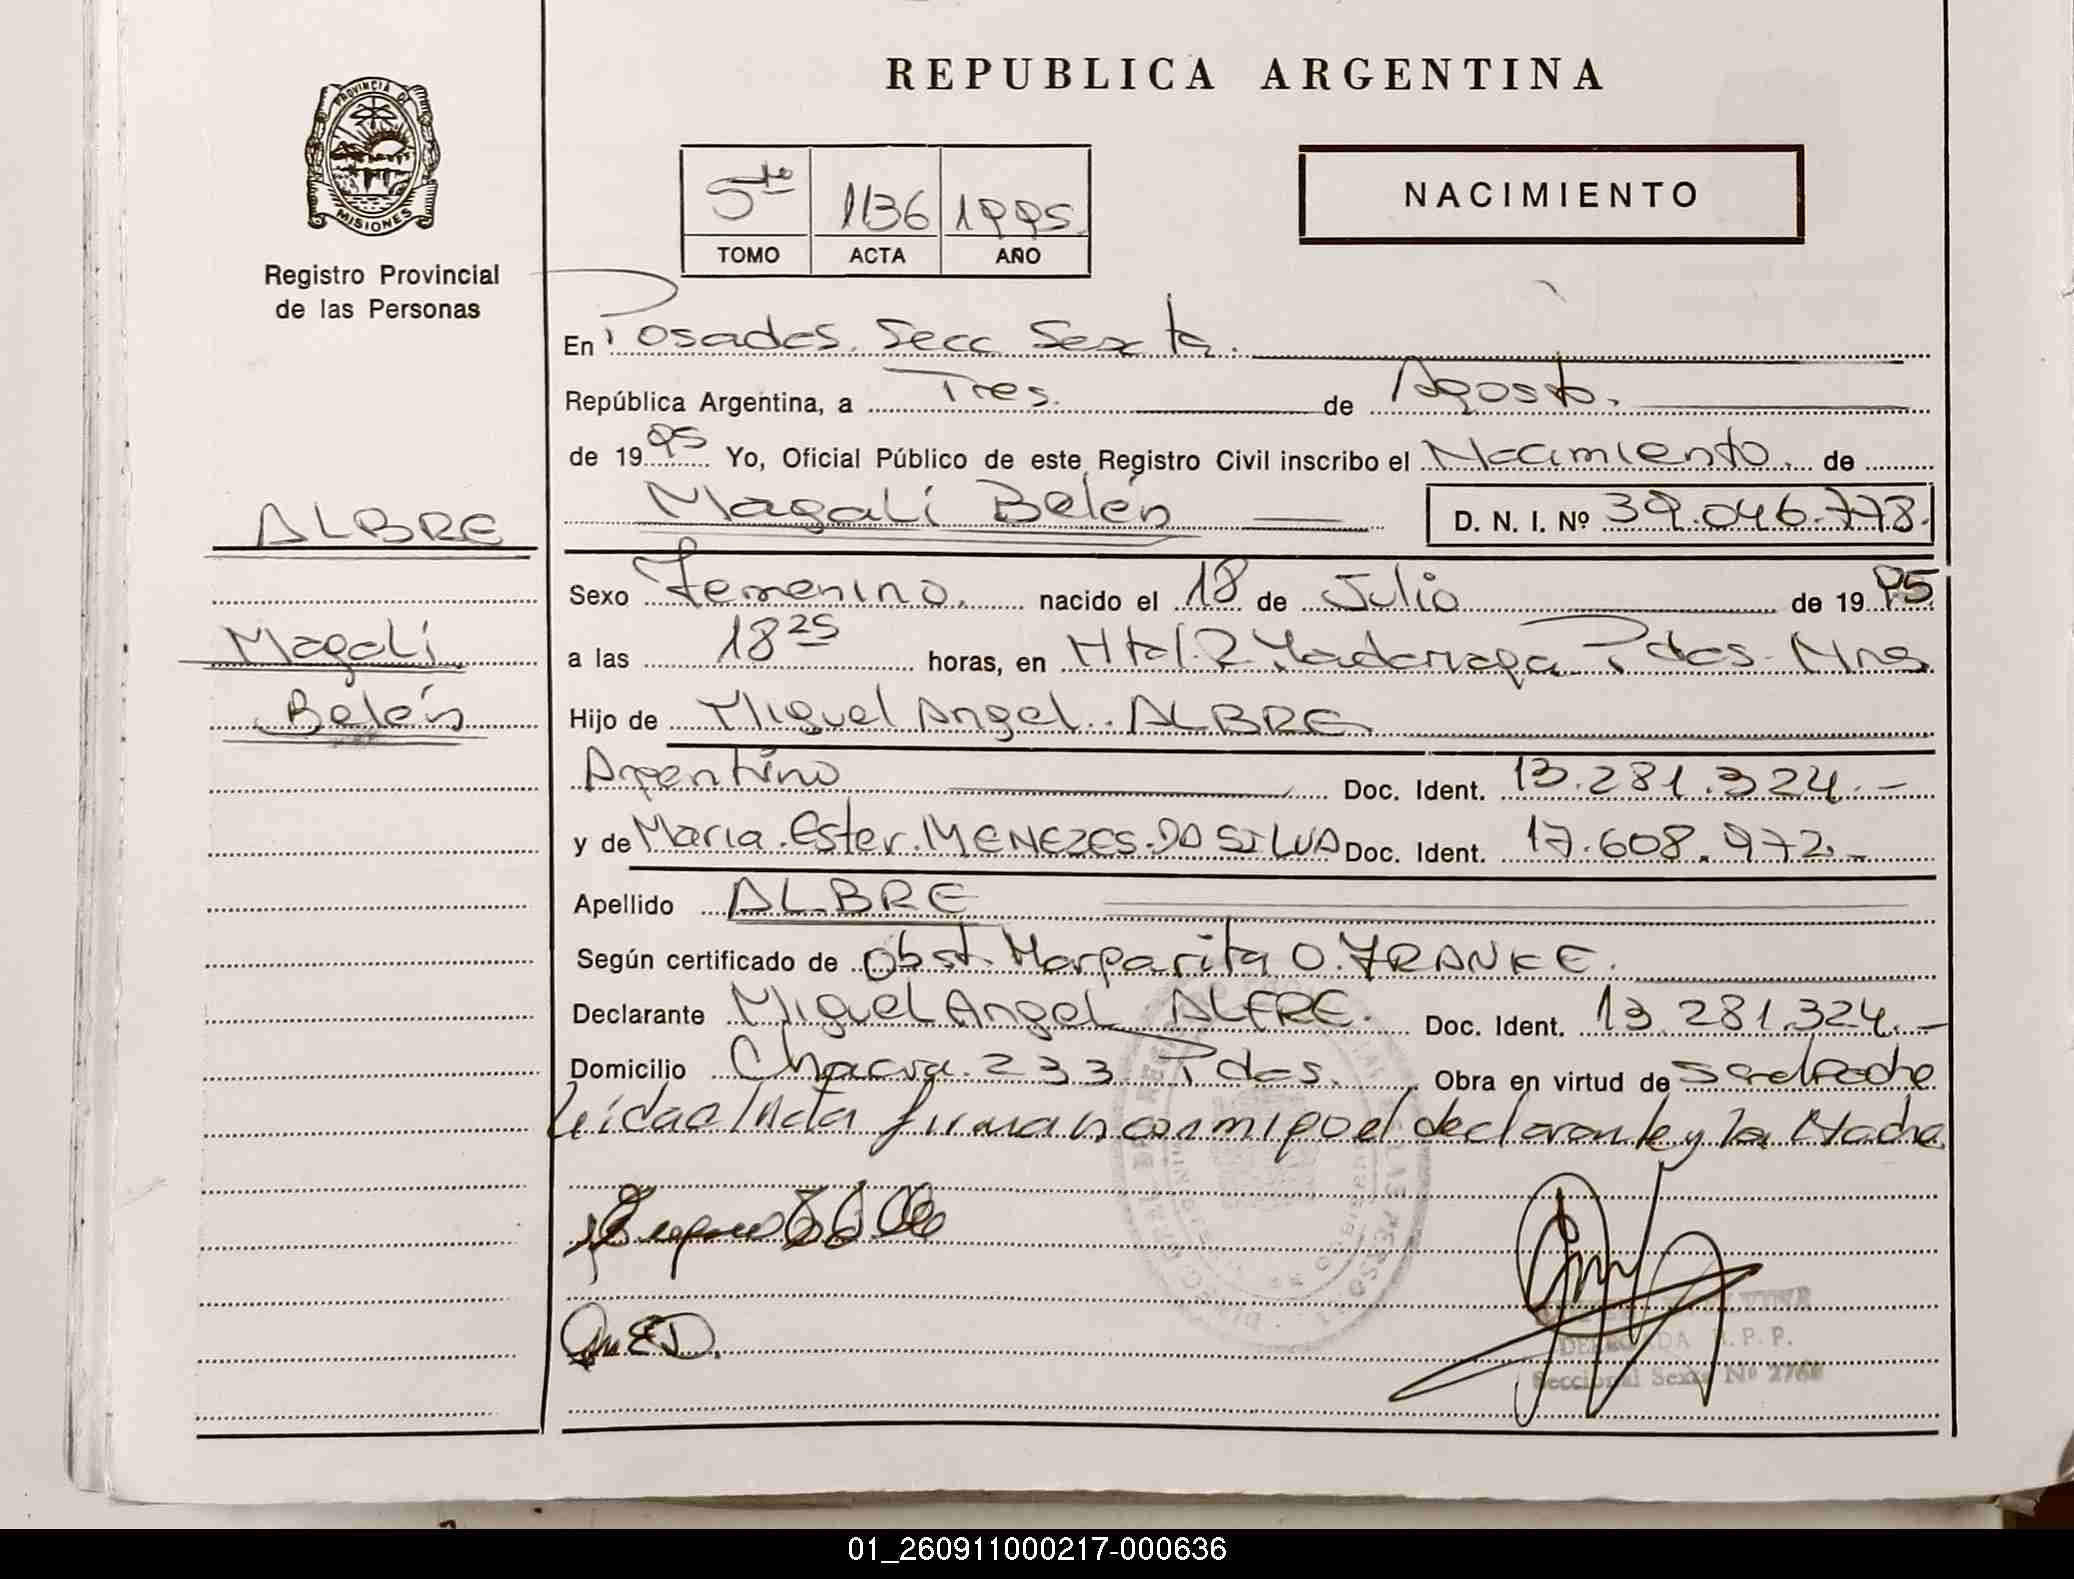 REPUBLICA ARGENTINA
PROVINCIA DE
MISIONES
Registro Provincial
de las Personas
5to 1136 1995.
TOMO ACTA AÑO
NACIMIENTO
En Posadas. Secc Sexta.
República Argentina, a Tres. de Agosto.
de 1995 Yo, Oficial Público de este Registro Civil inscribo el Nacimiento. de
Magalí Belén D. N. I. Nº 39.046.778.
ALBRE
Magalí
Belén
Sexo Femenino. nacido el 18 de Julio de 1995
a las 18 25 horas, en Htal. R. Madariaga Pdas. Mns
Hijo de Miguel Angel. ALBRE
Argentino Doc. Ident. 13.281.324.-
y de Maria. Ester. MENEZES. DA SILVA Doc. Ident. 17.608.972.-
Apellido ALBRE
Según certificado de Obst. Margarita O. FRANKE.
Declarante Miguel Angel ALFRE. Doc. Ident. 13.281.324.-
Domicilio Chacra. 233 Pdas. Obra en virtud de ser el Padre
Leida el Acta firman conmigo el declarante y la Madre
R. P. P.
Seccional Sexta Nº
01_260911000217-000636